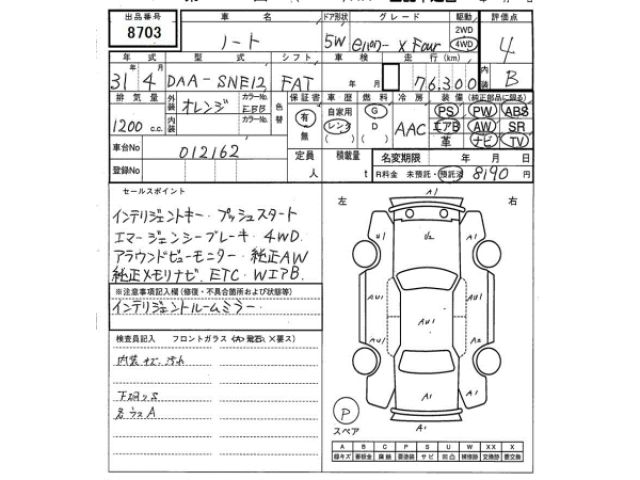 出品番号 車名 ドア形状 グレード 駆動 評価点
8703 ノート 5W e-パワー X Four 2WD 4WD 4
年式 型式 シフト 車検 走行(km) 内装 B
31年 4月 DAA-SNE12 FAT 年 月 76,300
排気量 外装 オレンジ カラーNo. EBB 色替 保証書 車歴 燃料 冷房 装備(純正部品に限る)
1200 c.c. 内装 カラーNo. 有 無 自家用 レンタ ( ) G D ( ) AAC PS PW ABS
エアB AW SR
革 ナビ TV
車台No 012162 定員 人 積載量 t 名変期限 年 月 日
登録No R料金 未預託・預託済 8190 円
セールスポイント 左 右
インテリジェントキー・プッシュスタート
エマージェンシーブレーキ・4WD
アラウンドビューモニター・純正AW
純正メモリナビ.ETC.WエアB.
※注意事項記入欄(修復・不具合箇所および状態等)
インテリジェントルームミラー
検査員記入 フロントガラス
内装キズ.汚れ
下回りS
A1
U1 A1
AU1 AU1 AU1
A2 A2
A1 A1 A1
A1
P
スペア
A B C P S U W XX X
線キズ 板金 腐蝕 要塗装 サビ 凹凸 補修跡 交換跡 要交換